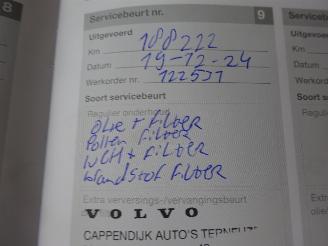 8
Servicebeurt nr. 9
Uitgevoerd
Km 188222
Datum 19-12-24
Werkorder nr. 122531
Soort servicebeurt
Regulier onderhoud
olie + Filter
Pollen Filter
LUCHT Filter
brandstof Filter
Extra verversings-/vervangingsbeurt
VOLVO
CAPPENDIJK AUTO'S TERNEUZE
Servi
Uitgev
Km
Datum
Werko
Soort
Reguli
Extra